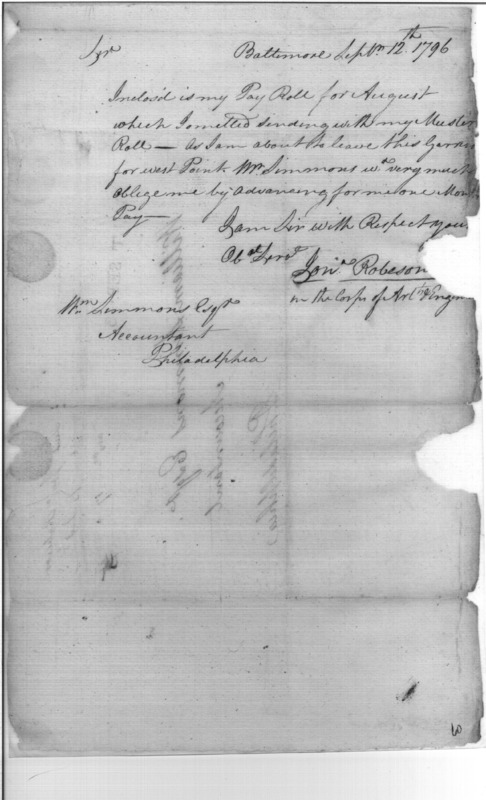 Sir Baltimore Septr. 12th 1796
Inclos'd is my Pay Roll for August
which I omitted sending with my Muster
Roll — As I am about to leave this Garrison
for west Point Mr. Simmons wd. very much
oblige me by advancing for me one Mon
Pay —
I am Sir with Respect your
Obt. Servt.
Jona. Robeson
in the Corps of Art. & Engin
Wm. Simmons Esqr.
Accountant
Philadelphia